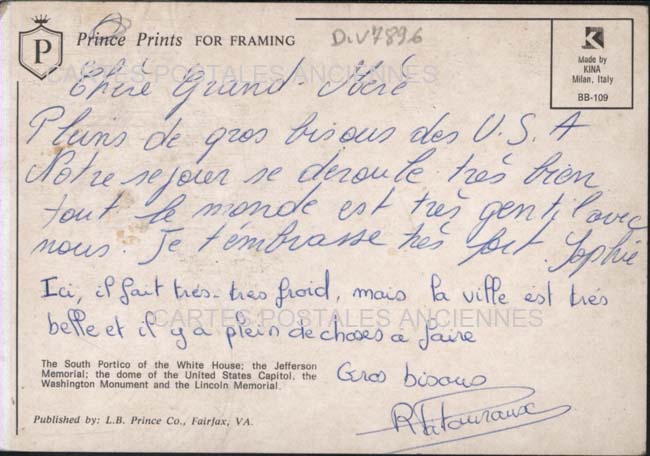 P
Prince Prints FOR FRAMING
D.V7896
K
Made by
KINA
Milan, Italy
BB-109
CARTES POSTALES ANCIENNES
Chère Grand-Mère
Pleins de gros bisous des U.S.A
Notre sejour se deroule très bien
tout le monde est très gentil avec
nous. Je t'embrasse très fort. Sophie
Ici, il fait très-très froid, mais la ville est très
belle et il y a plein de choses à faire
CARTES POSTALES ANCIENNES
Gros bisous
The South Portico of the White House; the Jefferson
Memorial; the dome of the United States Capitol, the
Washington Monument and the Lincoln Memorial.
Published by: L.B. Prince Co., Fairfax, VA.